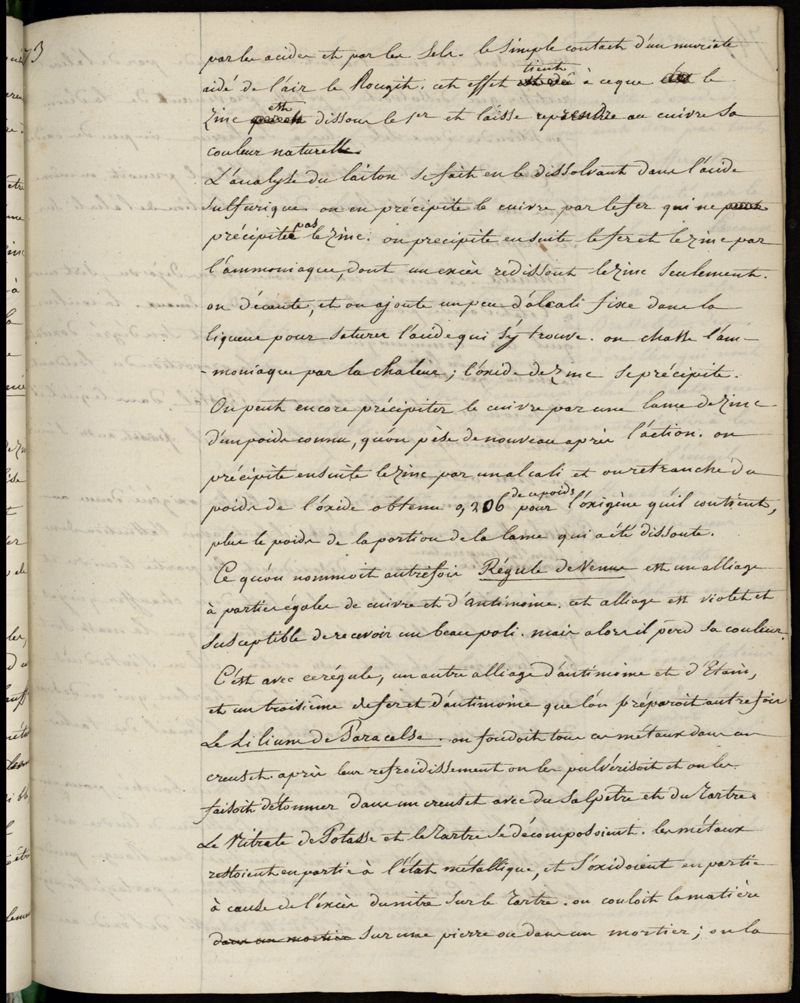 73
par les acides et par les Sels. le simple contact d'un muriate
aidé de l'air le Rougit. cet effet tient à ceque le
Zinc est dissous le 1er et laisse reprendre au cuivre sa
couleur naturelle.
L'analyse du laiton se fait en le dissolvant dans l'acide
sulfurique on en précipite le cuivre par le fer qui ne
précipite pas le Zinc. on précipite ensuite le fer et le Zinc par
l'ammoniaque, dont un excès redissout le Zinc seulement.
on décante, et on ajoute un peu d'alcali fixe dans la
liqueur pour saturer l'acide qui s'y trouve. on chasse l'am-
-moniaque par la chaleur; l'oxide de Zinc se précipite.
On peut encore précipiter le cuivre par une lame de Zinc
d'un poids connu, qu'on pèse de nouveau après l'action. on
précipite ensuite le Zinc par un alcali et on retranche du
poids de l'oxide obtenu 0,206 de ce poids pour l'oxigène qu'il contient,
plus le poids de la portion de la lame qui a été dissoute.
Ce qu'on nommoit autrefois Régule de Venus est un alliage
à parties égales de cuivre et d'antimoine. cet alliage est violet et
susceptible de recevoir un beau poli. mais alors il perd sa couleur.
C'est avec ce régule, un autre alliage d'antimoine et d'Etain,
et un troisième de fer et d'antimoine que l'on préparoit autrefois
Le Lilium de Paracelse. on fondoit tous ces métaux dans un
creuset. après leur refroidissement on les pulvérisoit et on les
faisoit détonner dans un creuset avec du Salpêtre et du Tartre.
Le Nitrate de Potasse et le Tartre se décomposoient. les métaux
restoient en partie à l'état métallique, et s'oxidoient en partie
à cause de l'excès du nitre sur le Tartre. on couloit la matière
dans un mortier sur une pierre ou dans un mortier; on la